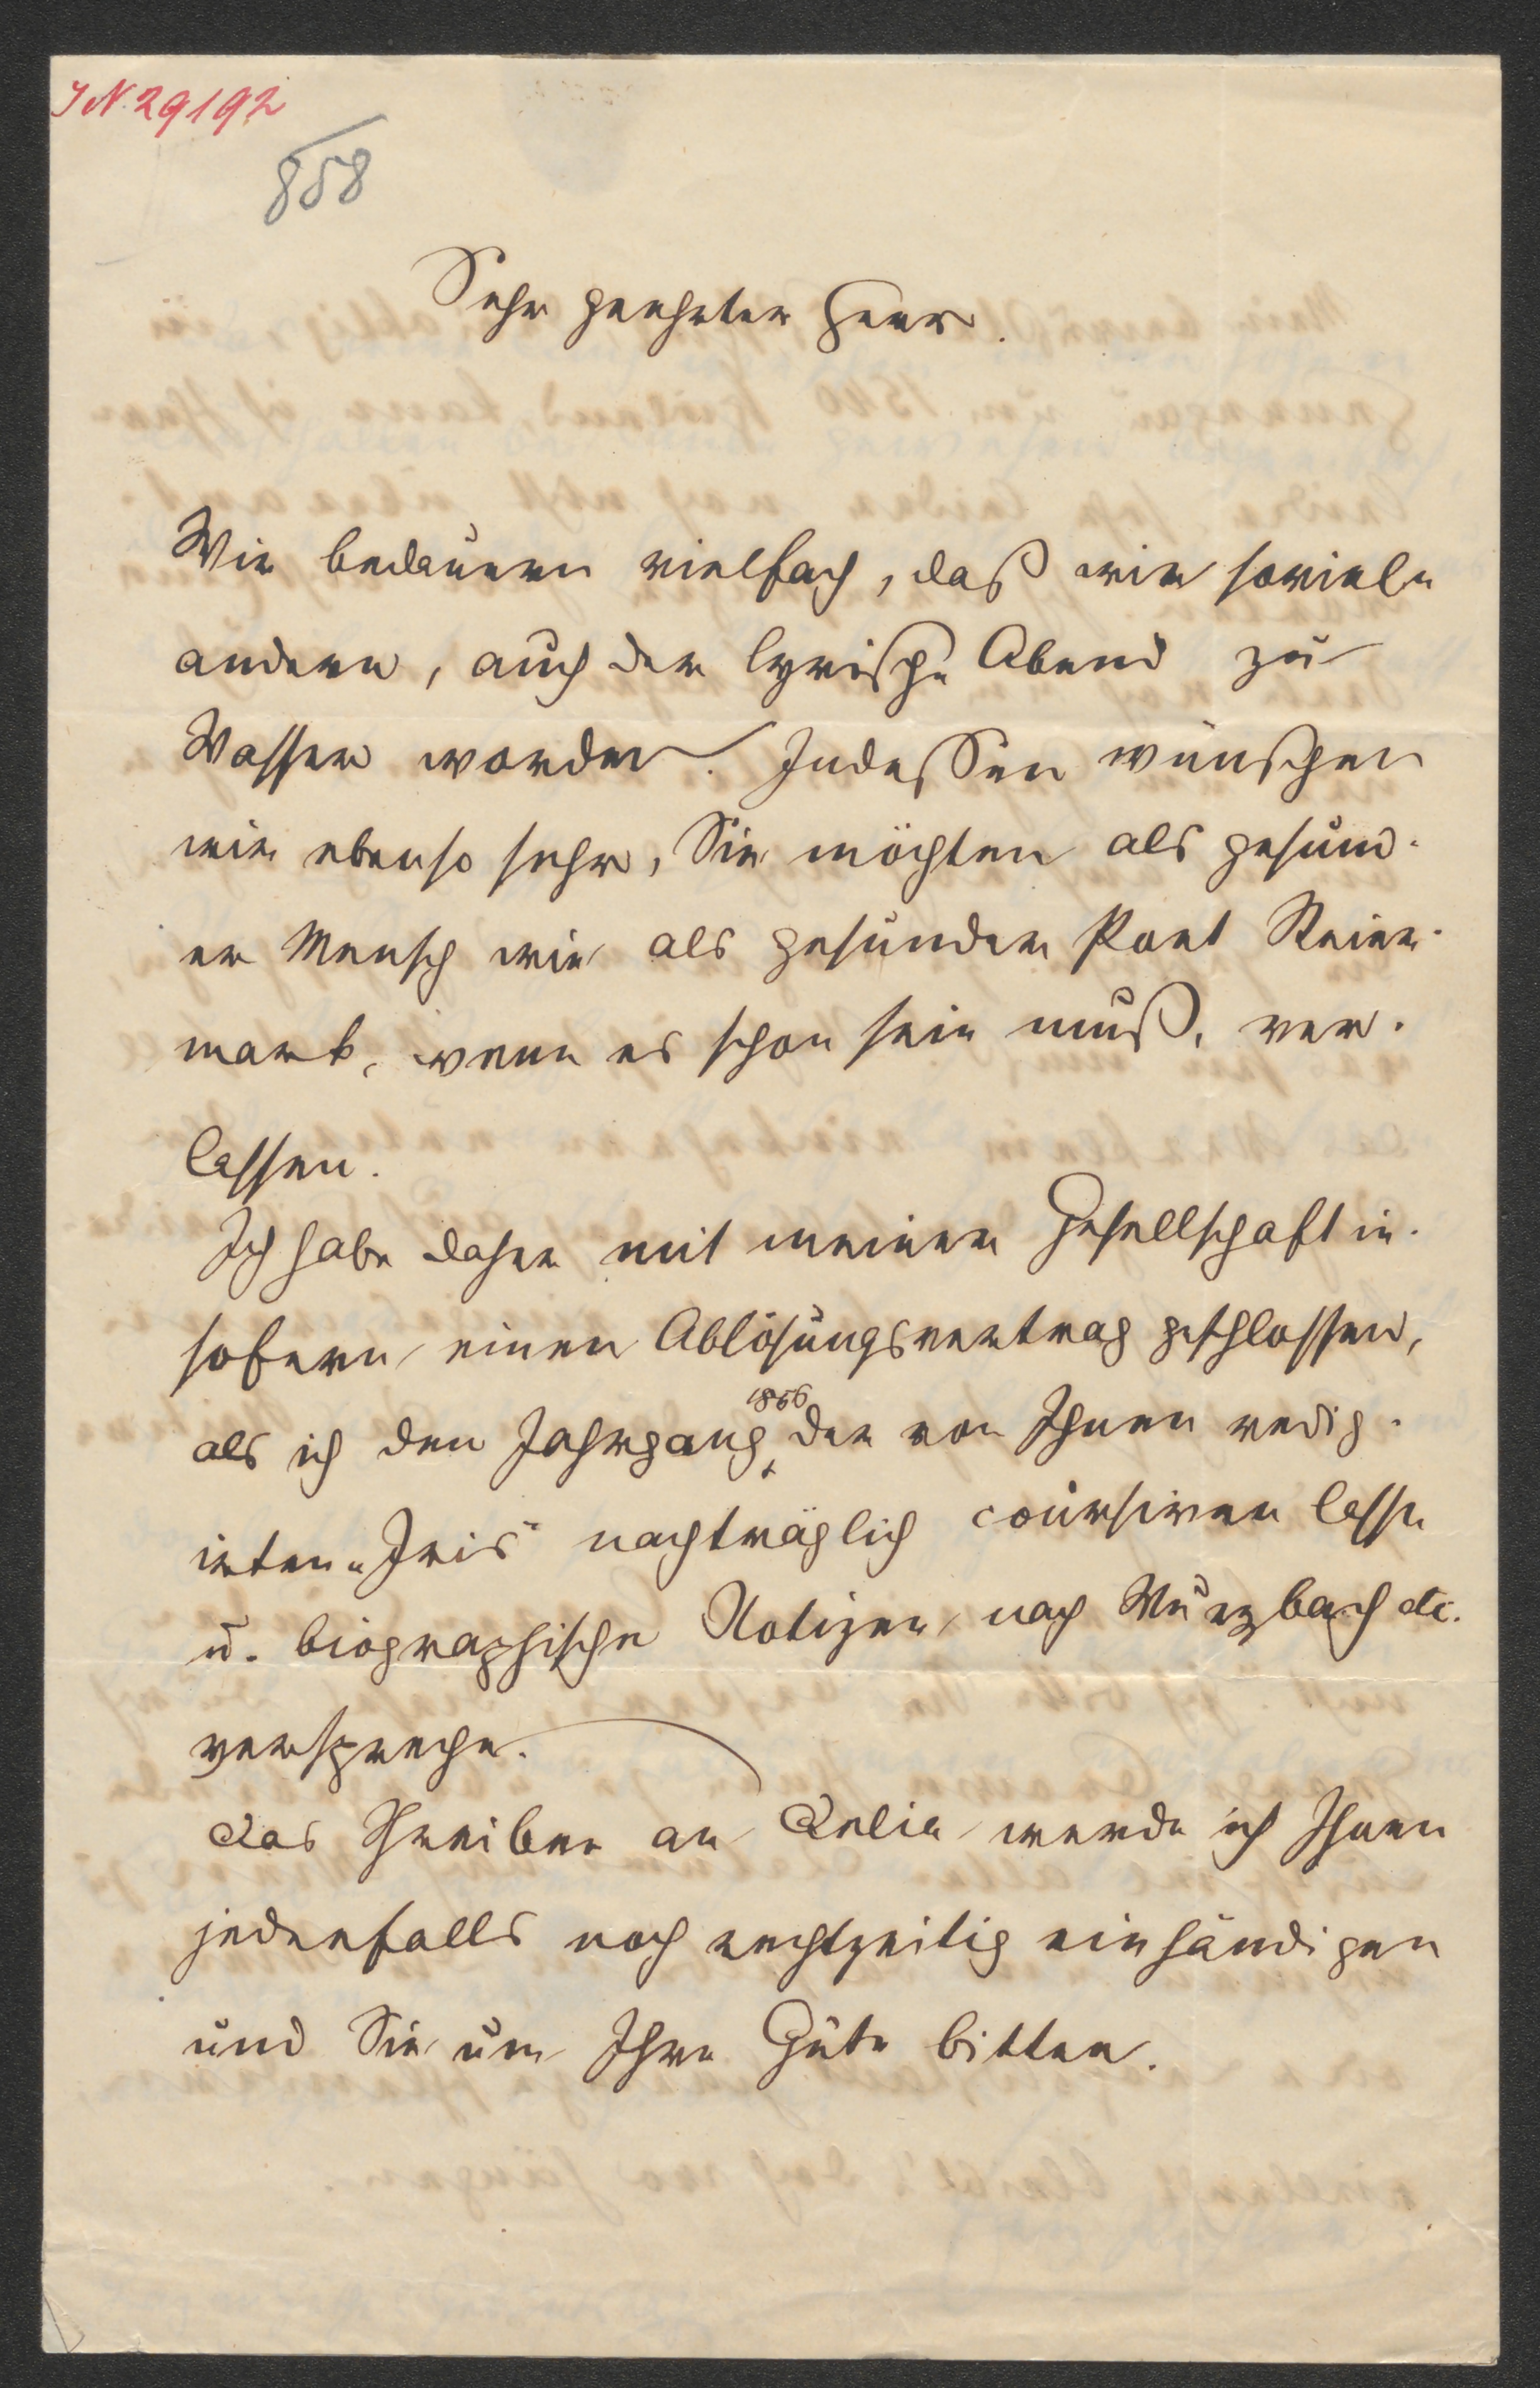 IN. 29192
858
Sehr geehrter Herr.
Wir bedauern vielfach, daß wie soviele
andere, auch der lyrische Abend zu
Wasser worden. Indessen wünschen
wir ebenso sehr, Sie möchten als gesund-
er Mensch wie als gesunder Poet Steier-
mark, wenn es schon sein muß, ver-
lassen.
Ich habe daher mit meiner Gesellschaft in-
sofern einen Ablösungsvertrag geschlossen,
als ich den Jahrgang 1856 der von Ihnen redig-
irten „Iris“ nachträglich coursiren lasse
u. biographische Notizen nach Wurzbach etc.
verspreche.
Das Schreiben an Delia werde ich Ihnen
jedenfalls noch rechtzeitig einhändigen
und Sie um Ihre Güte bitten.